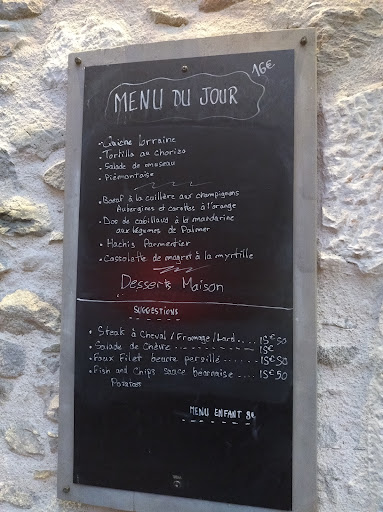 16€
MENU DU JOUR
- Quiche lorraine
- Tortilla au chorizo
- Salade de museau
- Piémontaise
• Bœuf à la cuillère aux champignons
Aubergines et carottes à l'orange
• Dos de cabillaud à la mandarine
aux légumes de Palmer
• Hachis Parmentier
• Cassolette de magret à la myrtille
Desserts Maison
SUGGESTIONS
• Steak à Cheval / Fromage / Lard .... 15€50
• Salade de Chèvre ------------ 15€
• Faux Filet beurre persillé ...... 15€50
• Fish and Chips sauce béarnaise .... 15€50
Potatoes
MENU ENFANT 8€